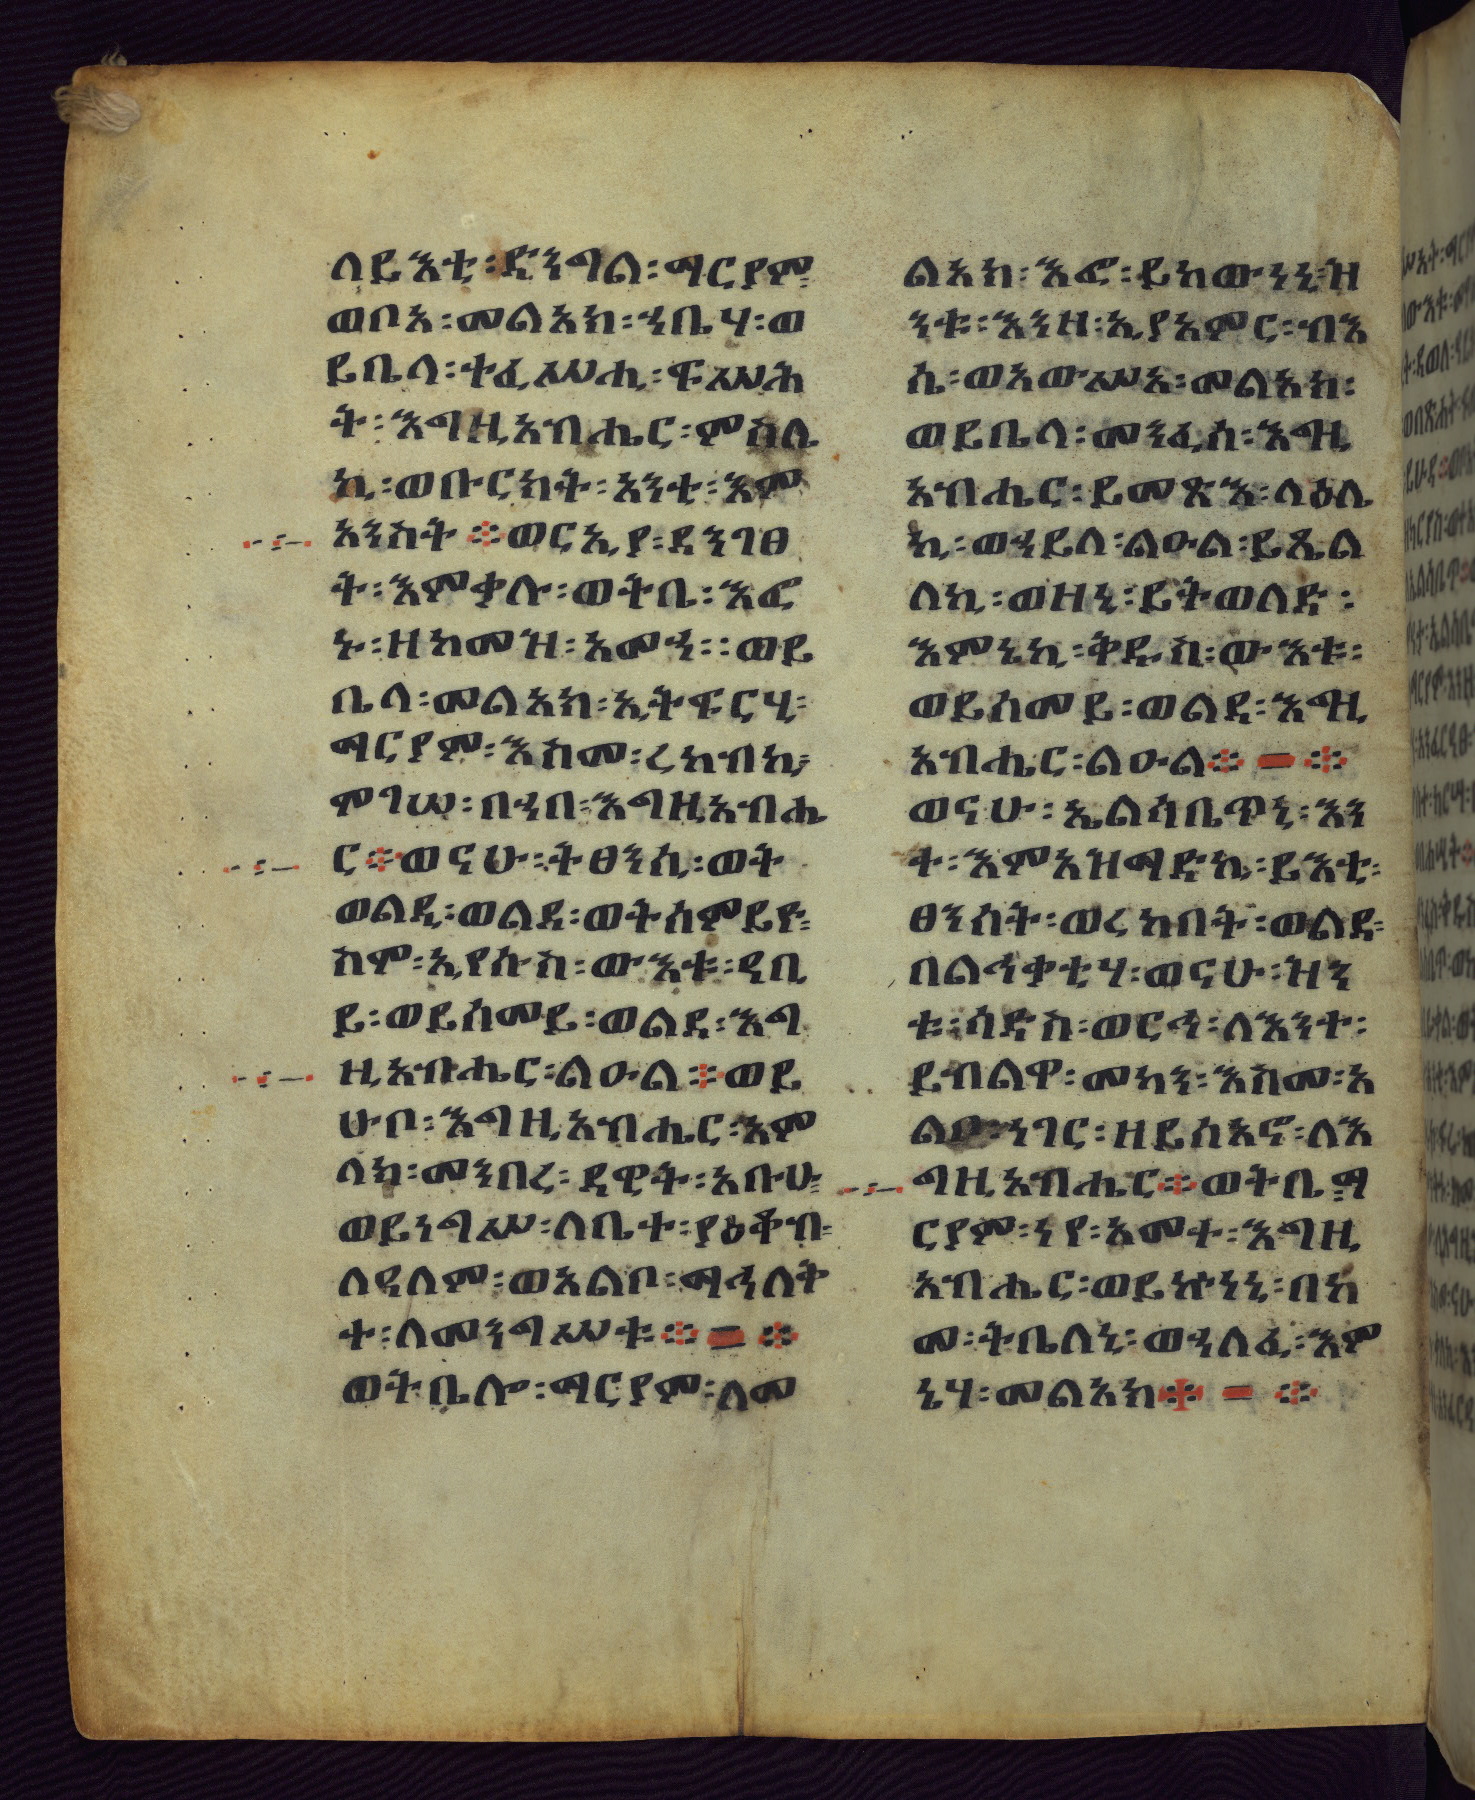 ለይእቲ፡ድንግል፡ማርያም፡
ወቦአ፡መልአክ፡ኀቤሃ፡ወ
ይቤላ፡ተፈሥሒ፡ፍሥሕ
ት፡እግዚአብሔር፡ምስሌ
ኪ፡ወቡርክት፡አንቲ፡እም
አንስት፨ወርእያ፡ደንገፀ
ት፡እምቃሉ፡ወትቤ፡እፎ
ኑ፡ዘከመዝ፡አመኅ፡፡ወይ
ቤላ፡መልአክ፡ኢትፍርሂ፡
ማርያም፡እስመ፡ረከብኪ፡
ምገሠ፡በኀበ፡እግዚአብሔ
ር፨ወናሁ፡ትፀንሲ፡ወት
ወልዲ፡ወልደ፡ወትሰምይዮ፡
ስሞ፡ኢየሱስ፡ውእቱ፡ዐቢ
ይ፡ወይሰመይ፡ወልደ፡እግ
ዚአብሔር፡ልዑል፨ወይ
ሁቦ፡እግዚአብሔር፡አም
ላክ፡መንበረ፡ዳዊት፡አቡሁ፡
ወይነግሥ፡ለቤተ፡ያዕቆብ፡
ለዓለም፡ወአልቦ፡ማኅለቅ
ተ፡ለመንግሥቱ፨ ፨
ወትቤሎ፡ማርያም፡ለመ
ልአክ፡እፎ፡ይከውነኒ፡ዝ
ንቱ፡እንዘ፡ኢያአምር፡ብእ
ሴ፡ወአውሥአ፡መልአክ፡
ወይቤላ፡መንፈስ፡እግዚ
አብሔር፡ይመጽእ፡ላዕሌ
ኪ፡ወኀይለ፡ልዑል፡ይጼል
ለኪ፡ወዘኒ፡ይትወለድ፡
እምኔኪ፡ቅዱስ፡ውእቱ፡
ወይሰመይ፡ወልደ፡እግዚ
አብሔር፡ልዑል፨ ፨
ወናሁ፡ኤልሳቤጥኒ፡እን
ተ፡እምአዝማድኪ፡ይእቲ፡
ፀንሰት፡ወረከበት፡ወልደ፡
በልኅቀቲሃ፡ወናሁ፡ዝን
ቱ፡ሳድስ፡ወርኅ፡ለእንተ፡
ይብልዋ፡መካን፡እስመ፡አ
ልቦ፡ነገር፡ዘይሰአኖ፡ለእ
ግዚአብሔር፨ወትቤ፡ማ
ርያም፡ነየ፡አመተ፡እግዚ
አብሔር፡ወይኩነኒ፡በከ
መ፡ትቤለኒ፡ወኀለፈ፡እም
ኔሃ፡መልአክ፨ ፨